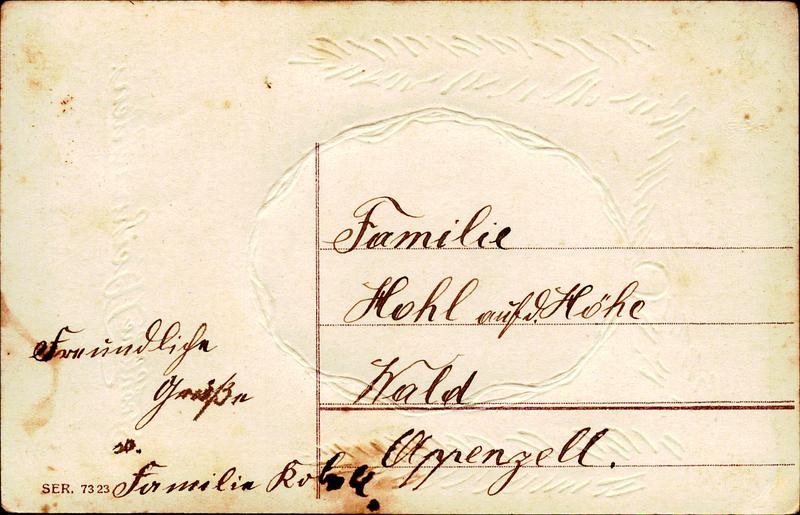 Freundliche
Grüße
v.
Familie
SER. 7323
Familie
Hohl auf d. Höhe
Wald
Appenzell.